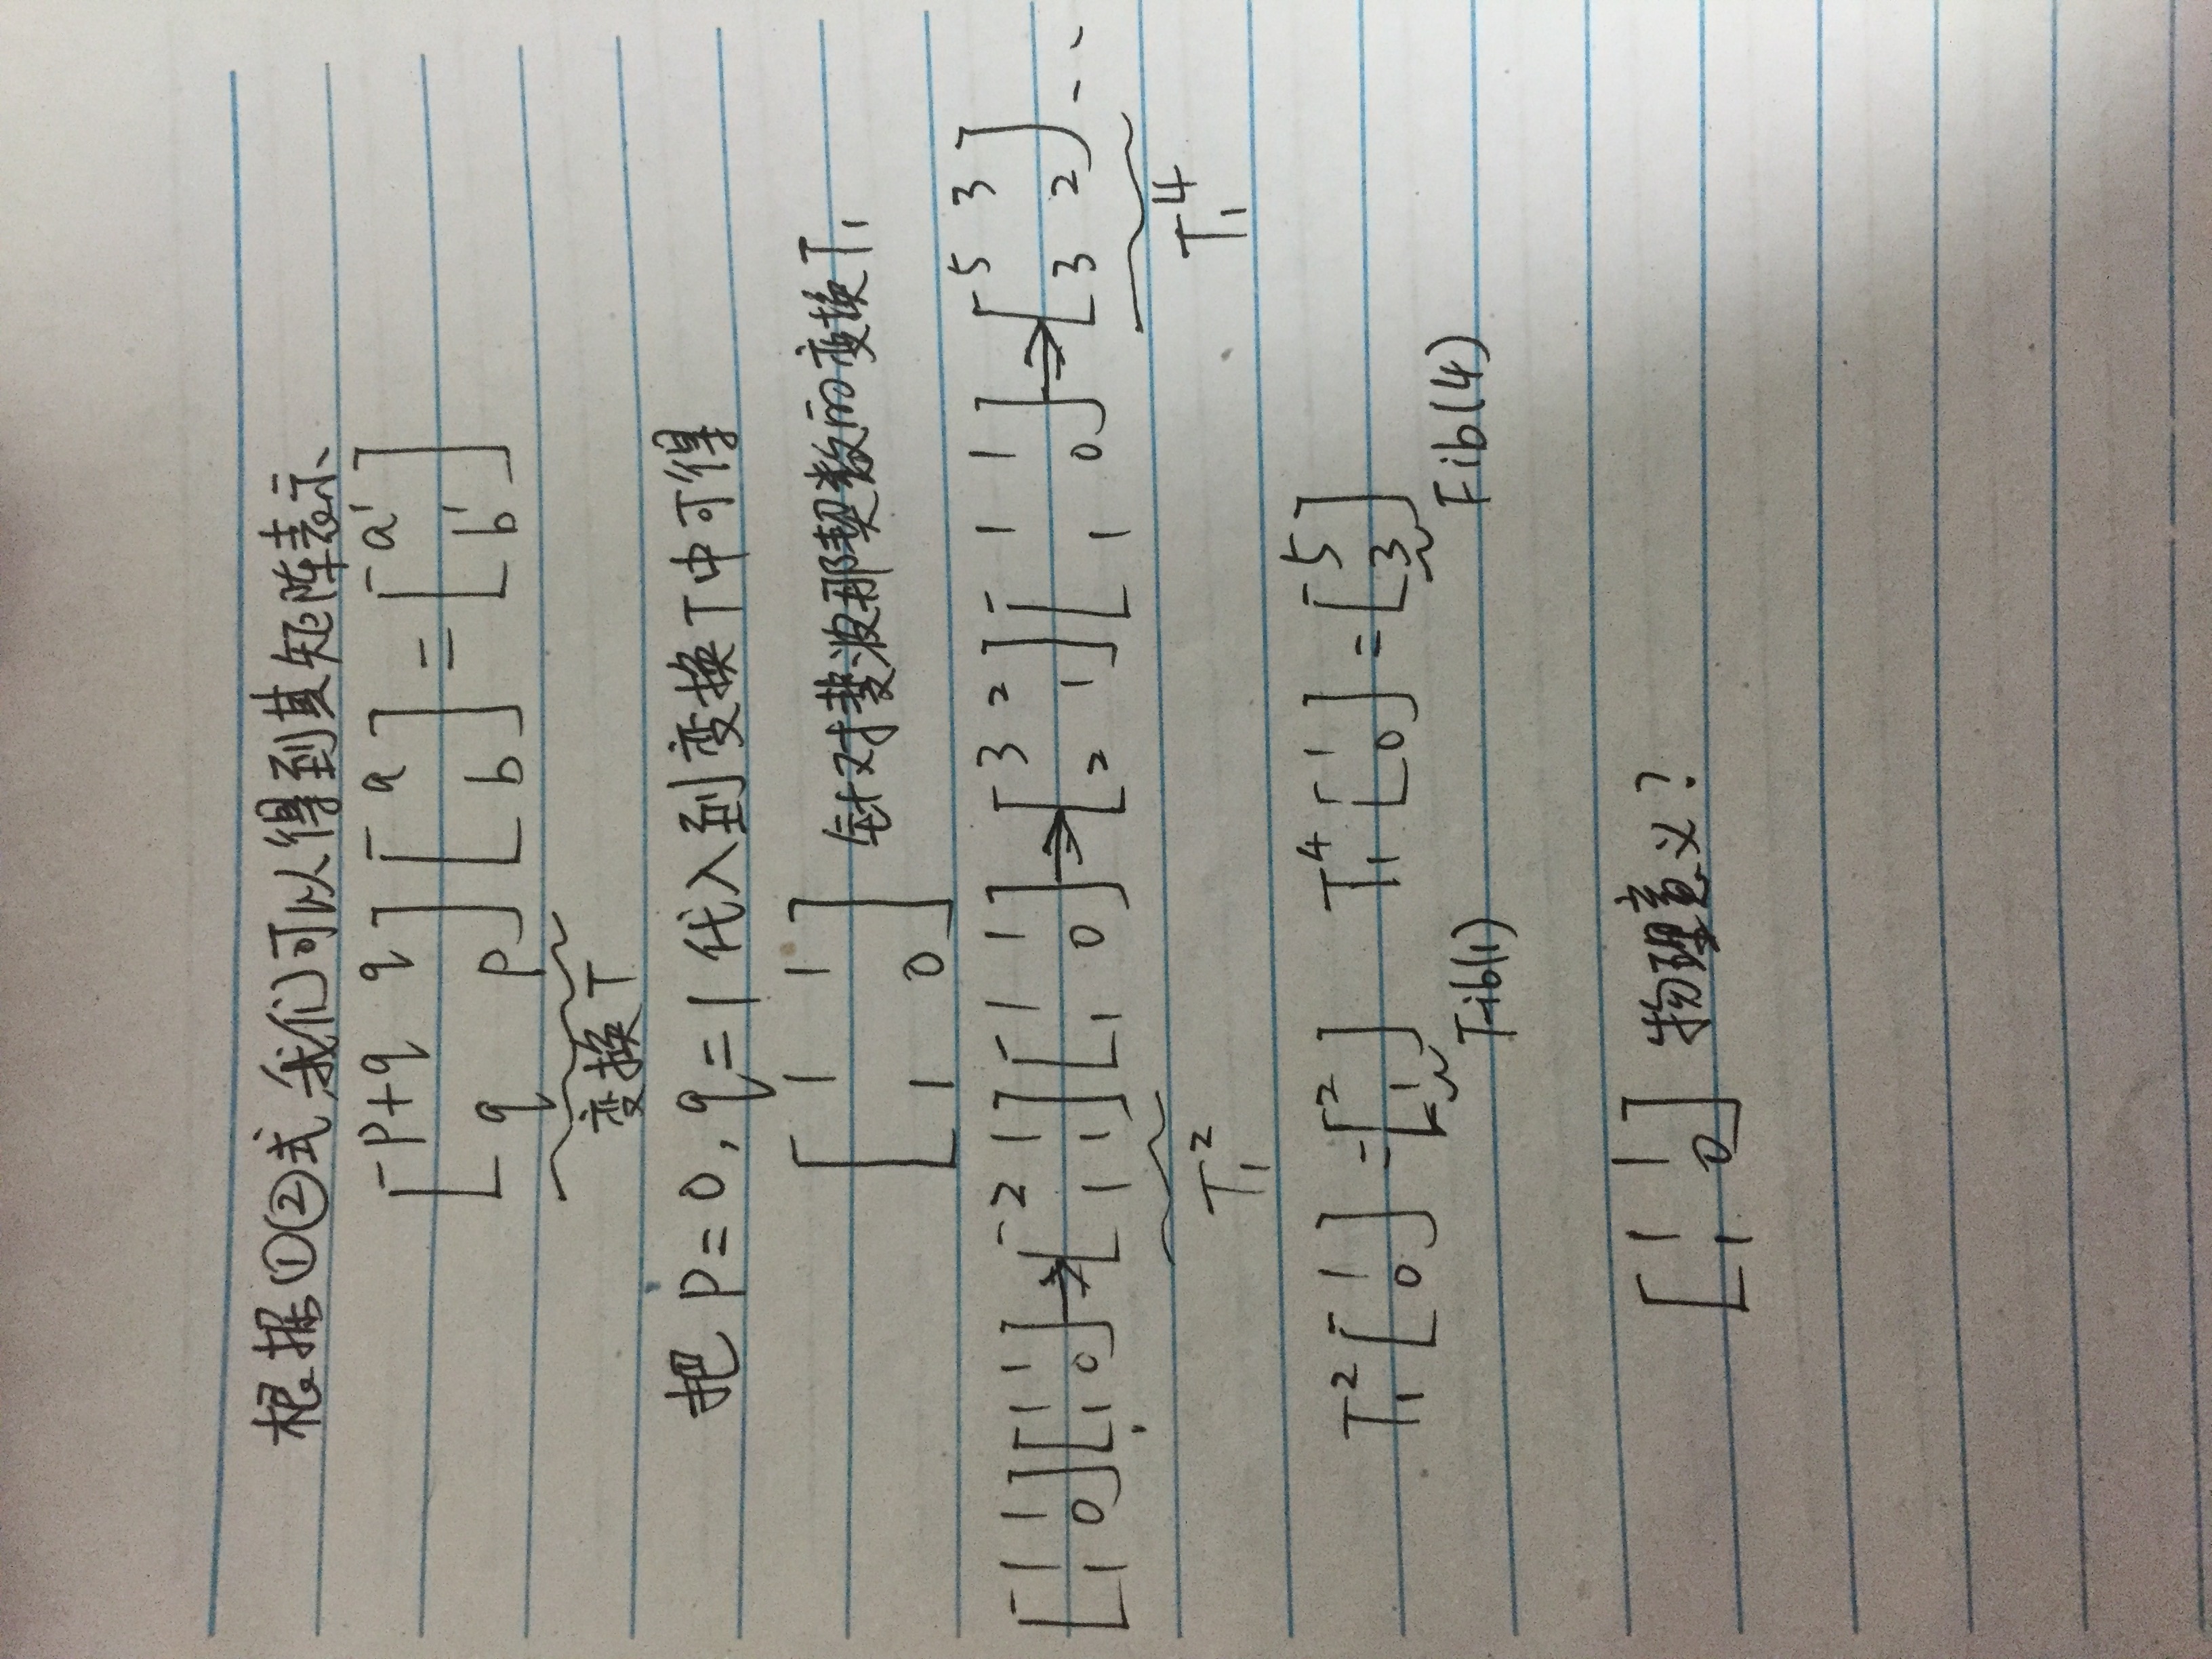 根据①②式我们可以得到其矩阵表示
[p+q q; q p] [a; b] = [a'; b']
变换T
把 p=0, q=1 代入到变换T中可得
[1 1; 1 0] 针对斐波那契数的变换T₁
[1 1; 1 0][1 1; 1 0] → [2 1; 1 1][1 1; 1 0] → [3 2; 2 1][1 1; 1 0] → [5 3; 3 2] ...
T₁² T₁⁴
T₁² [1; 0] = [2; 1] T₁⁴ [1; 0] = [5; 3]
Fib(1) Fib(4)
[1 1; 1 0] 物理意义?